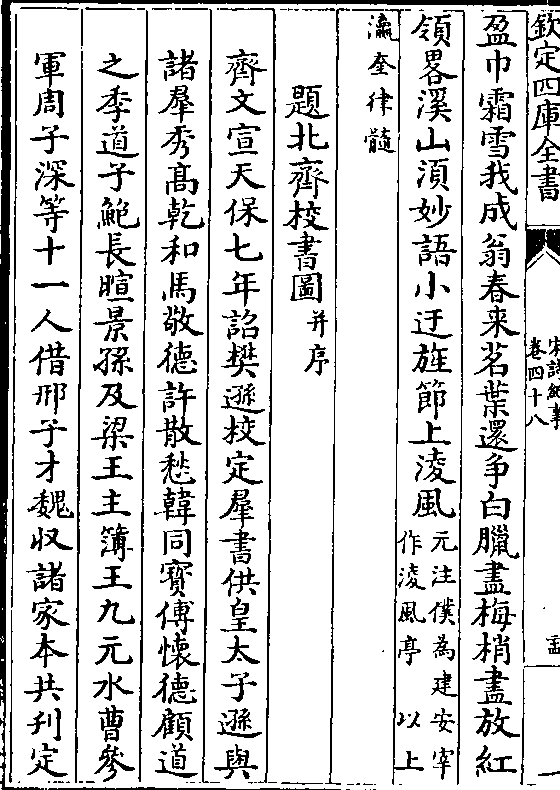 欽定四庫全書
宋詩紀事
卷四十八
盈巾霜雪我成翁春来茗葉還争白臘盡梅梢盡放紅
領畧溪山湏妙語小迂旌節上淩風元注僕為建安宰作淩風亭 以上
瀛奎律髓
題北齊校書圖并序
齊文宣天保七年詔樊遜校定羣書供皇太子遜與
諸羣秀髙乾和馬敬德許散愁韓同寳傅懐德顧道
之季道子鮑長暄景孫及梁王主簿王九元水曹參
軍周子深等十一人借邢子才魏収諸家本共刋定